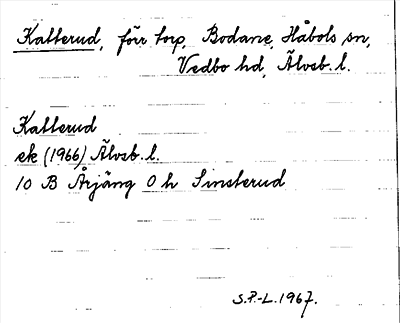 Kallerud, förr torp, Bodane, Håbols sn,
Vedbo hd, Älvsb. l.
Kallerud
ek (1966) Älvsb. l.
10 B Årjäng 0 h Linsterud
S.P.-L. 1967.